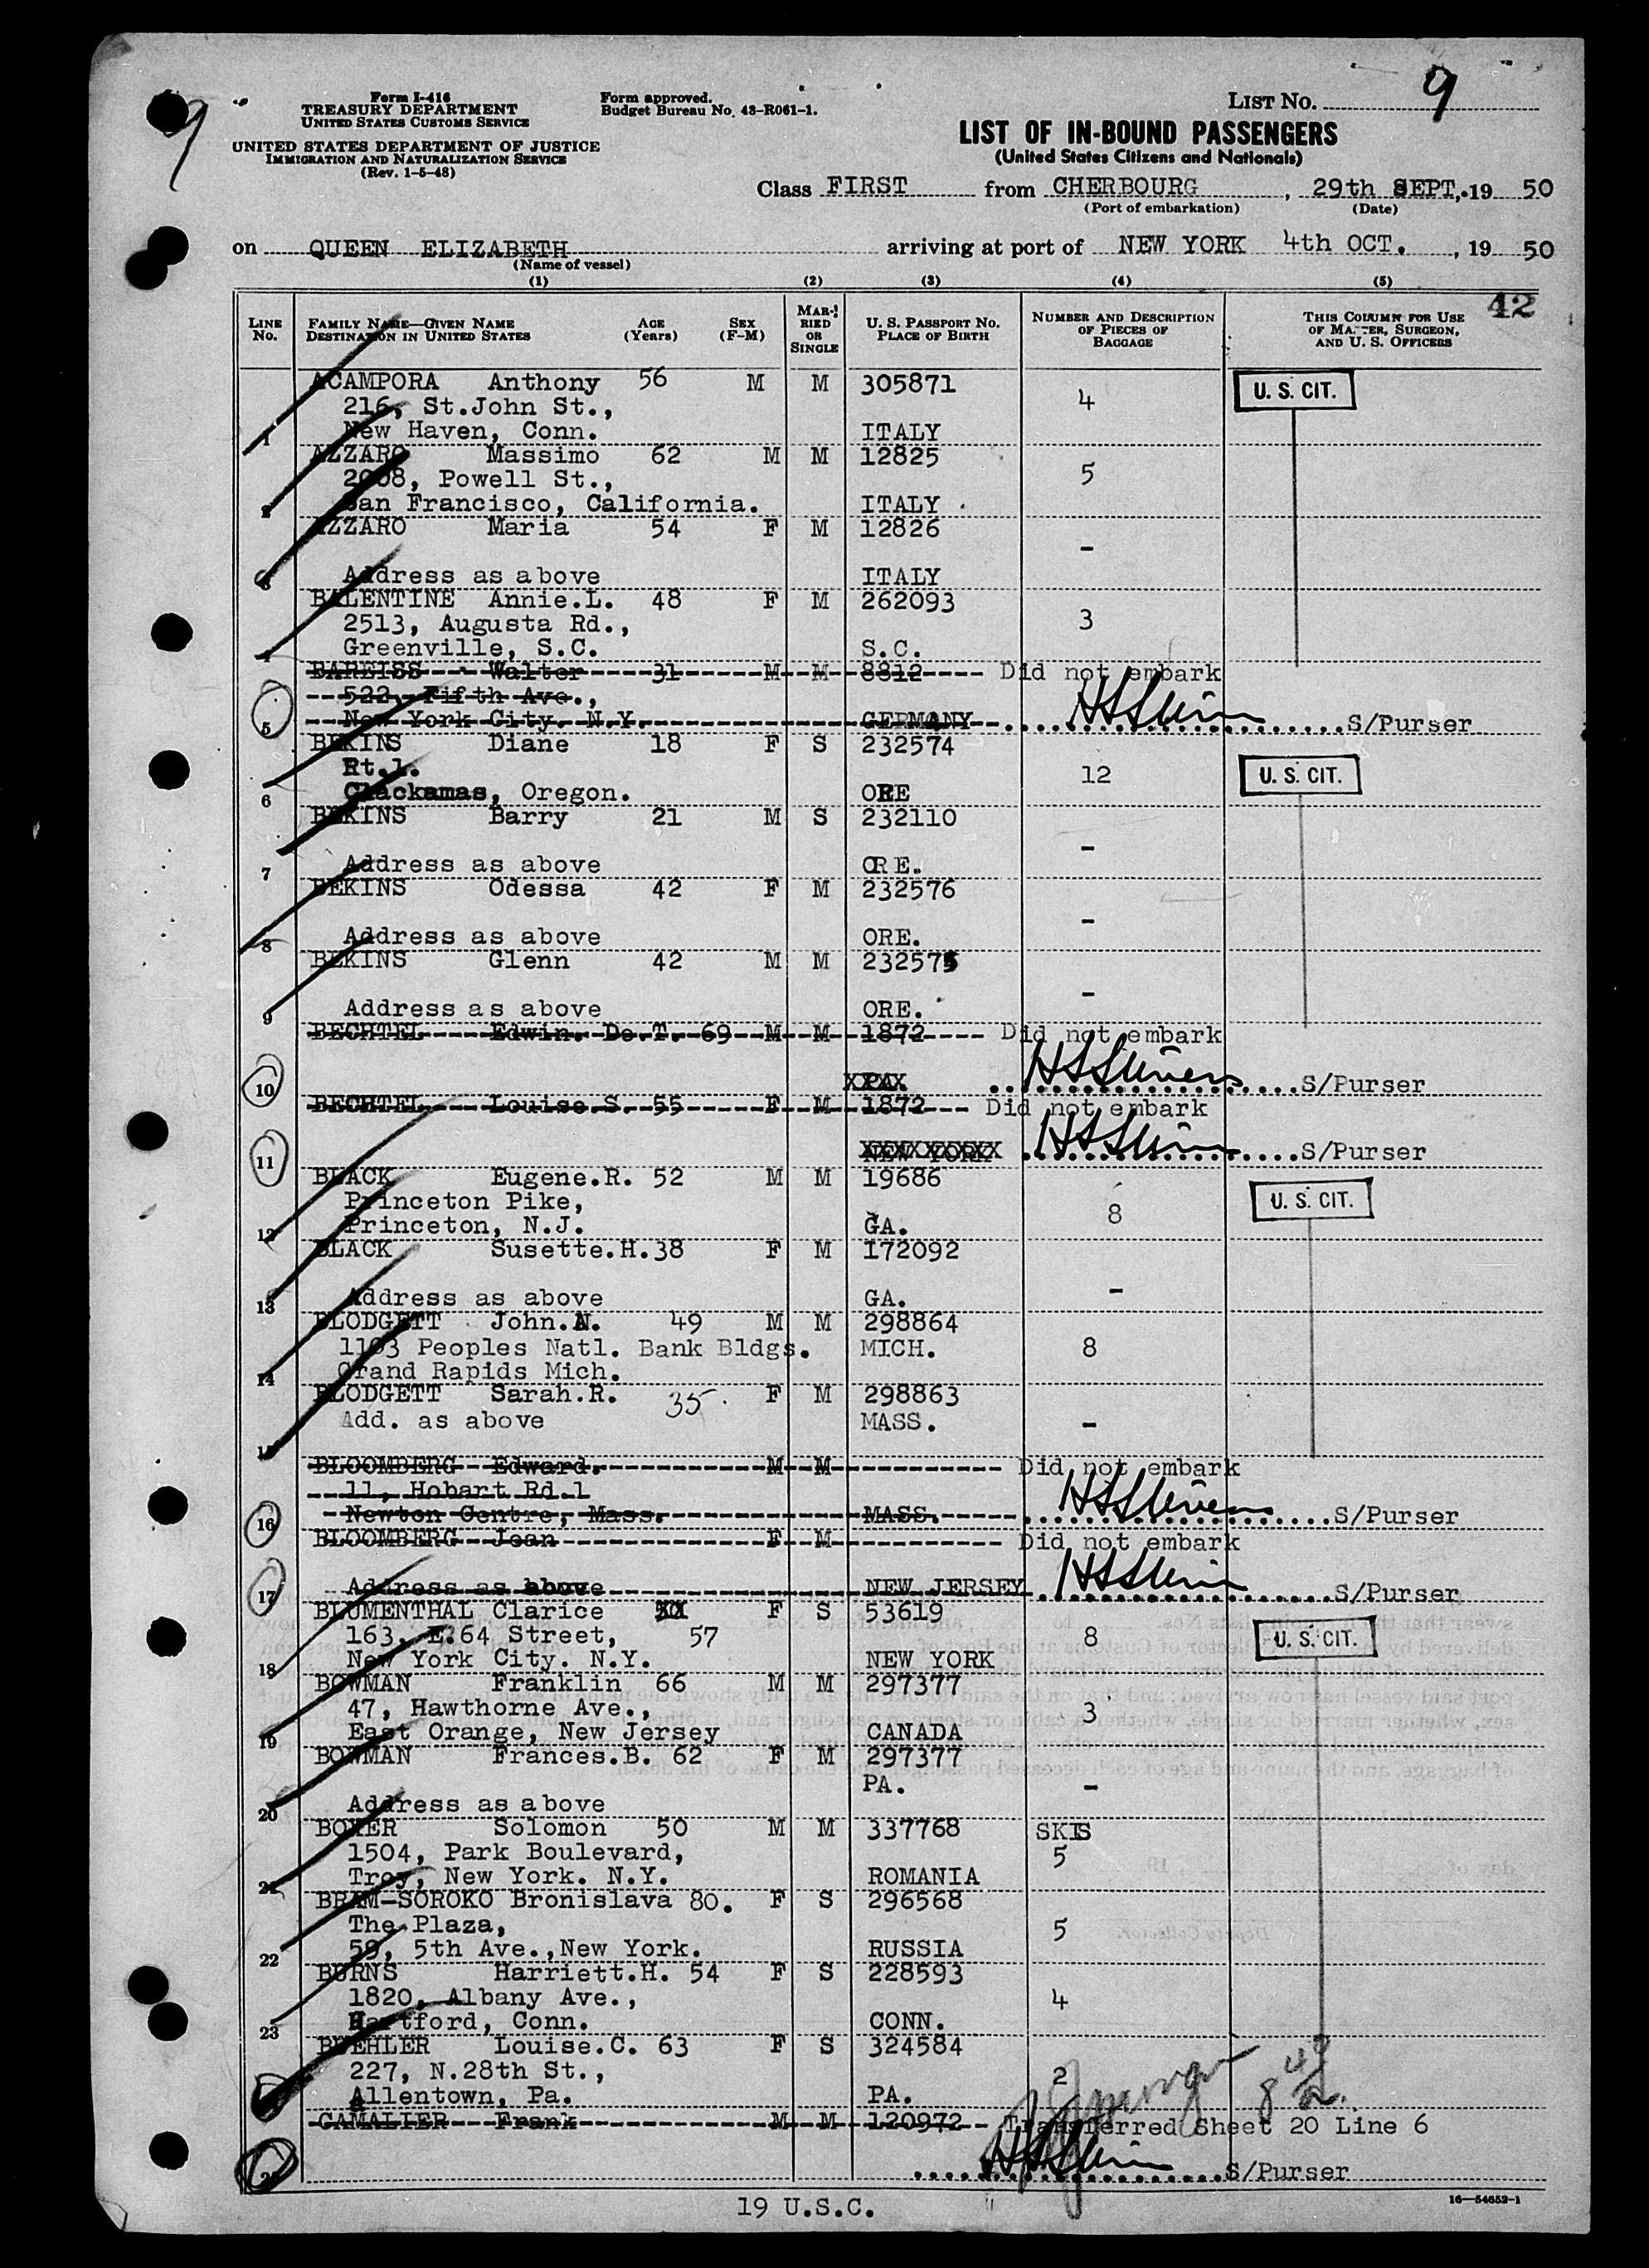 9
Form I-416
TREASURY DEPARTMENT
UNITED STATES CUSTOMS SERVICE
UNITED STATES DEPARTMENT OF JUSTICE
IMMIGRATION AND NATURALIZATION SERVICE
(Rev. 1-5-48)
Form approved.
Budget Bureau No. 43-R061-1.
LIST NO. 9
LIST OF IN-BOUND PASSENGERS
(United States Citizens and Nationals)
Class FIRST from CHERBOURG, 29th SEPT, 19 50
(Port of embarkation) (Date)
on QUEEN ELIZABETH arriving at port of NEW YORK 4th OCT., 19 50
(Name of vessel)
(1) (2) (3) (4) (5)
42
LINE No. FAMILY NAME—GIVEN NAME DESTINATION IN UNITED STATES AGE (Years) SEX (F-M) MARRIED OR SINGLE U. S. PASSPORT NO. PLACE OF BIRTH NUMBER AND DESCRIPTION OF PIECES OF BAGGAGE THIS COLUMN FOR USE OF MASTER, SURGEON, AND U. S. OFFICERS
ACAMPORA Anthony 56 M M 305871 4 U. S. CIT.
216, St.John St.,
1 New Haven, Conn. ITALY
AZZARO Massimo 62 M M 12825 5
2008, Powell St.,
2 San Francisco, California. ITALY
AZZARO Maria 54 F M 12826 -
3 Address as above ITALY
BALENTINE Annie.L. 48 F M 262093 3
2513, Augusta Rd.,
4 Greenville, S.C. S.C.
BAREISS Walter 31 M M 8812 Did not embark
522, Fifth Ave.,
5 New York City. N.Y. GERMANY S/Purser
BEKINS Diane 18 F S 232574 12 U. S. CIT.
Rt.1.
6 Clackamas, Oregon. ORE
BEKINS Barry 21 M S 232110 -
7 Address as above ORE.
BEKINS Odessa 42 F M 232576 -
8 Address as above ORE.
BEKINS Glenn 42 M M 232575 -
9 Address as above ORE.
BECHTEL Edwin. De.T. 69 M M 1872 Did not embark
10 S/Purser
BECHTEL Louise.S. 55 F M 1872 Did not embark
11 NEW YORK S/Purser
BLACK Eugene.R. 52 M M 19686 8 U. S. CIT.
Princeton Pike,
12 Princeton, N.J. GA.
BLACK Susette.H. 38 F M 172092 -
13 Address as above GA.
BLODGETT John. 49 M M 298864
1103 Peoples Natl. Bank Bldgs. MICH. 8
14 Grand Rapids Mich.
BLODGETT Sarah.R. 35. F M 298863
Add. as above MASS. -
15
BLOOMBERG Edward. M M Did not embark
11, Hobart Rd.1
16 Newton Centre, Mass. MASS. S/Purser
BLOOMBERG Joan F M Did not embark
17 Address as above NEW JERSEY S/Purser
BLUMENTHAL Clarice F S 53619
163, E.64 Street, 57 8 U. S. CIT.
18 New York City. N.Y. NEW YORK
BOWMAN Franklin 66 M M 297377
47, Hawthorne Ave., 3
19 East Orange, New Jersey CANADA
BOWMAN Frances.B. 62 F M 297377
PA. -
20 Address as above
BOXER Solomon 50 M M 337768 SKIS
1504, Park Boulevard, 5
21 Troy, New York. N.Y. ROMANIA
BRAM-SOROKO Bronislava 80. F S 296568
The Plaza, 5
22 59, 5th Ave.,New York. RUSSIA
BURNS Harriett.H. 54 F S 228593
1820, Albany Ave., 4
23 Hartford, Conn. CONN.
BUEHLER Louise.C. 63 F S 324584
227, N.28th St., 2
Allentown, Pa. PA.
GAMALIER Frank M M 120972 Transferred Sheet 20 Line 6
S/Purser
19 U.S.C.
16—54652-1